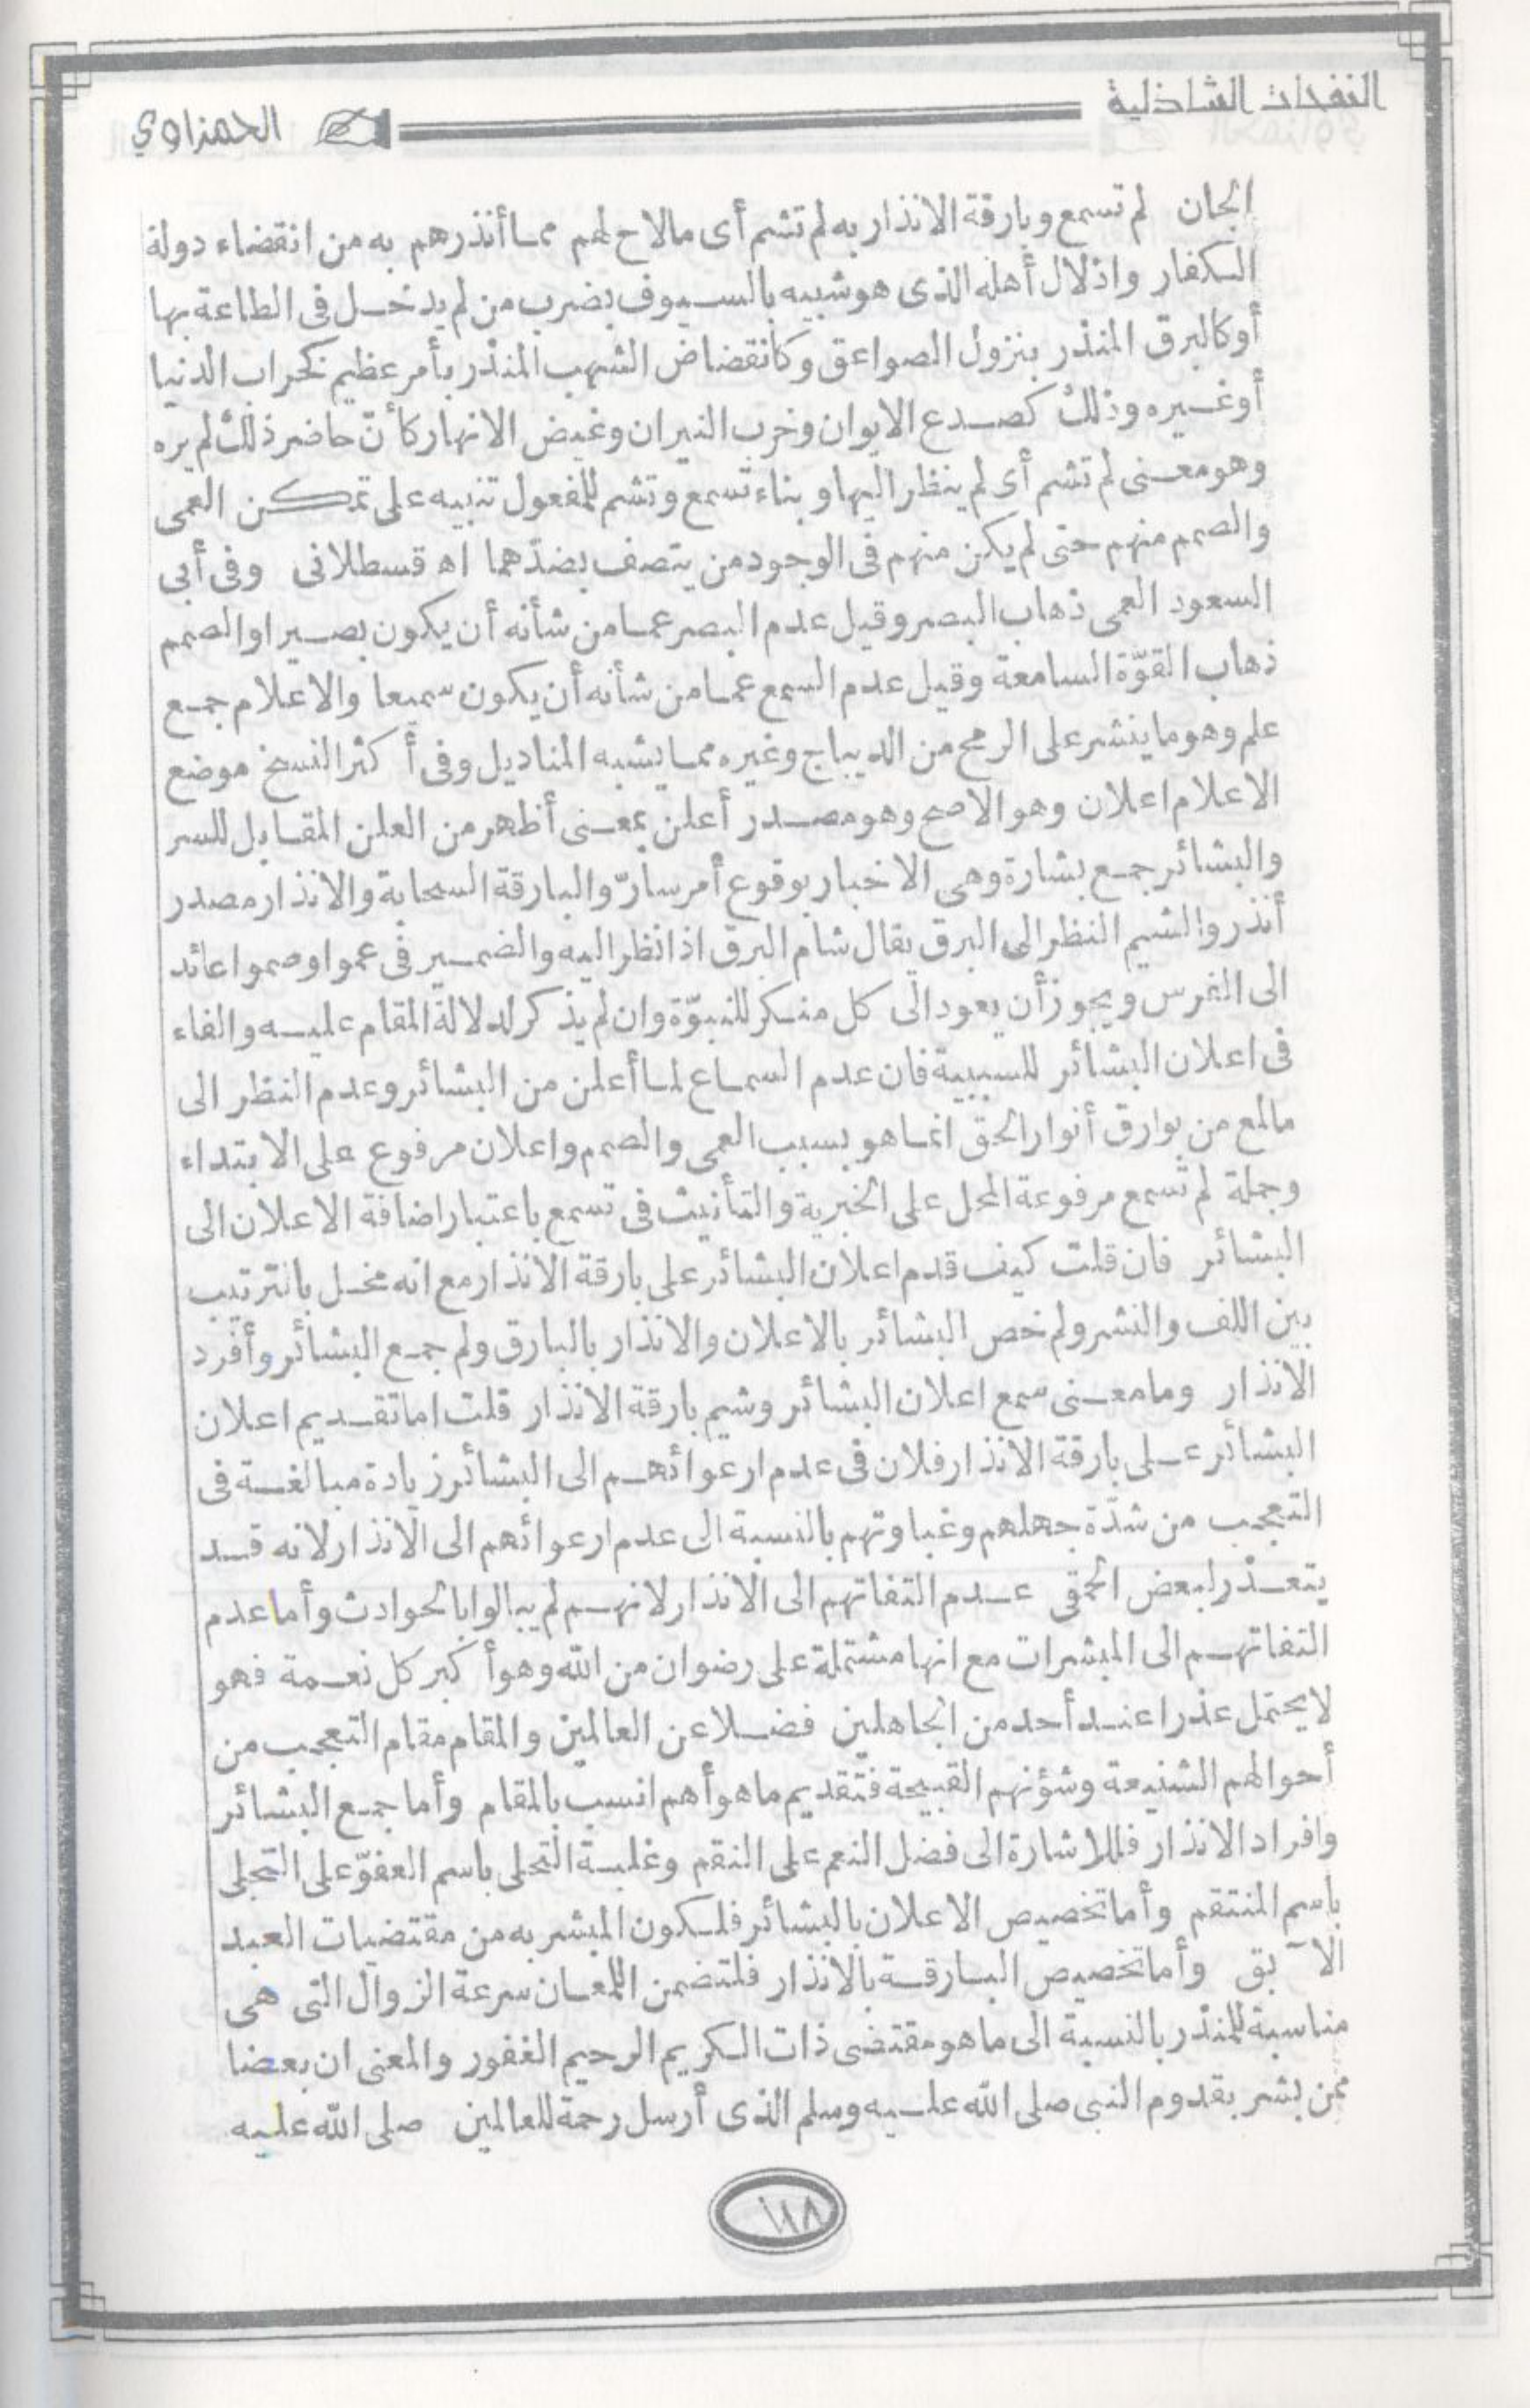 النفحات الشاذلية
الحمزاوي
الجان لم تسمع وبارقة الانذار به لم تشم أى مالاح لهم مما أنذرهم به من انقضاء دولة
الكفار واذلال أهله الذى هو شبيه بالسيوف بضرب من لم يدخل فى الطاعة بها
أو كالبرق المنذر بنزول الصواعق وكانقضاض الشهب المنذر بأمر عظيم كخراب الدنيا
أو غيره وذلك كصدع الايوان وخرب النيران وغيض الانهار كأن حاضر ذلك لم يره
وهو معنى لم تشم أى لم ينظر اليها وبناء تسمع وتشم للمفعول تنبيه على تمكن العمى
والصمم منهم حتى لم يكن منهم فى الوجود من يتصف بضدهما اه قسطلانى وفى أبى
السعود العمى ذهاب البصر وقيل عدم البصر عما من شأنه أن يكون بصيرا والصمم
ذهاب القوّة السامعة وقيل عدم السمع عما من شأنه أن يكون سميعا والاعلام جمع
علم وهو ما ينشر على الرمح من الديباج وغيره مما يشبه المناديل وفى أكثر النسخ موضع
الاعلام اعلان وهو الاصح وهو مصدر أعلن بمعنى أظهر من العلن المقابل للسر
والبشائر جمع بشارة وهى الاخبار بوقوع أمر سارّ والبارقة السحابة والانذار مصدر
أنذر والشيم النظر الى البرق يقال شام البرق اذا نظر اليه والضمير فى عموا وصموا عائد
الى الفرس ويجوز أن يعود الى كل منكر للنبوّة وان لم يذكر لدلالة المقام عليه والفاء
فى اعلان البشائر للسببية فان عدم السماع لما أعلن من البشائر وعدم النظر الى
مالمع من بوارق أنوار الحق انما هو بسبب العمى والصمم واعلان مرفوع على الابتداء
وجملة لم تسمع مرفوعة المحل على الخبرية والتأنيث فى تسمع باعتبار اضافة الاعلان الى
البشائر فان قلت كيف قدم اعلان البشائر على بارقة الانذار مع انه مخل بالترتيب
بين اللف والنشر ولم خص البشائر بالاعلان والانذار بالبارق ولم جمع البشائر وأفرد
الانذار وما معنى سمع اعلان البشائر وشيم بارقة الانذار قلت اما تقديم اعلان
البشائر على بارقة الانذار فلان فى عدم ارعوائهم الى البشائر زيادة مبالغة فى
التعجب من شدّة جهلهم وغباوتهم بالنسبة الى عدم ارعوائهم الى الانذار لانه قد
يتعذر لبعض الحمقى عدم التفاتهم الى الانذار لانهم لم يبالوا بالحوادث وأما عدم
التفاتهم الى المبشرات مع انها مشتملة على رضوان من الله وهو أكبر كل نعمة فهو
لا يحتمل عذرا عند أحد من الجاهلين فضلا عن العالمين والمقام مقام التعجب من
أحوالهم الشنيعة وشؤنهم القبيحة فتقديم ما هو أهم انسب بالمقام وأما جمع البشائر
وافراد الانذار فللاشارة الى فضل النعم على النقم وغلبة التجلى باسم العفوّ على التجلى
باسم المنتقم وأما تخصيص الاعلان بالبشائر فلكون المبشر به من مقتضيات العبد
الآبق وأما تخصيص البارقة بالانذار فلتضمن اللمعان سرعة الزوال التى هى
مناسبة للمنذر بالنسبة الى ما هو مقتضى ذات الكريم الرحيم الغفور والمعنى ان بعضا
ممن بشر بقدوم النبى صلى الله عليه وسلم الذى أرسل رحمة للعالمين صلى الله عليه